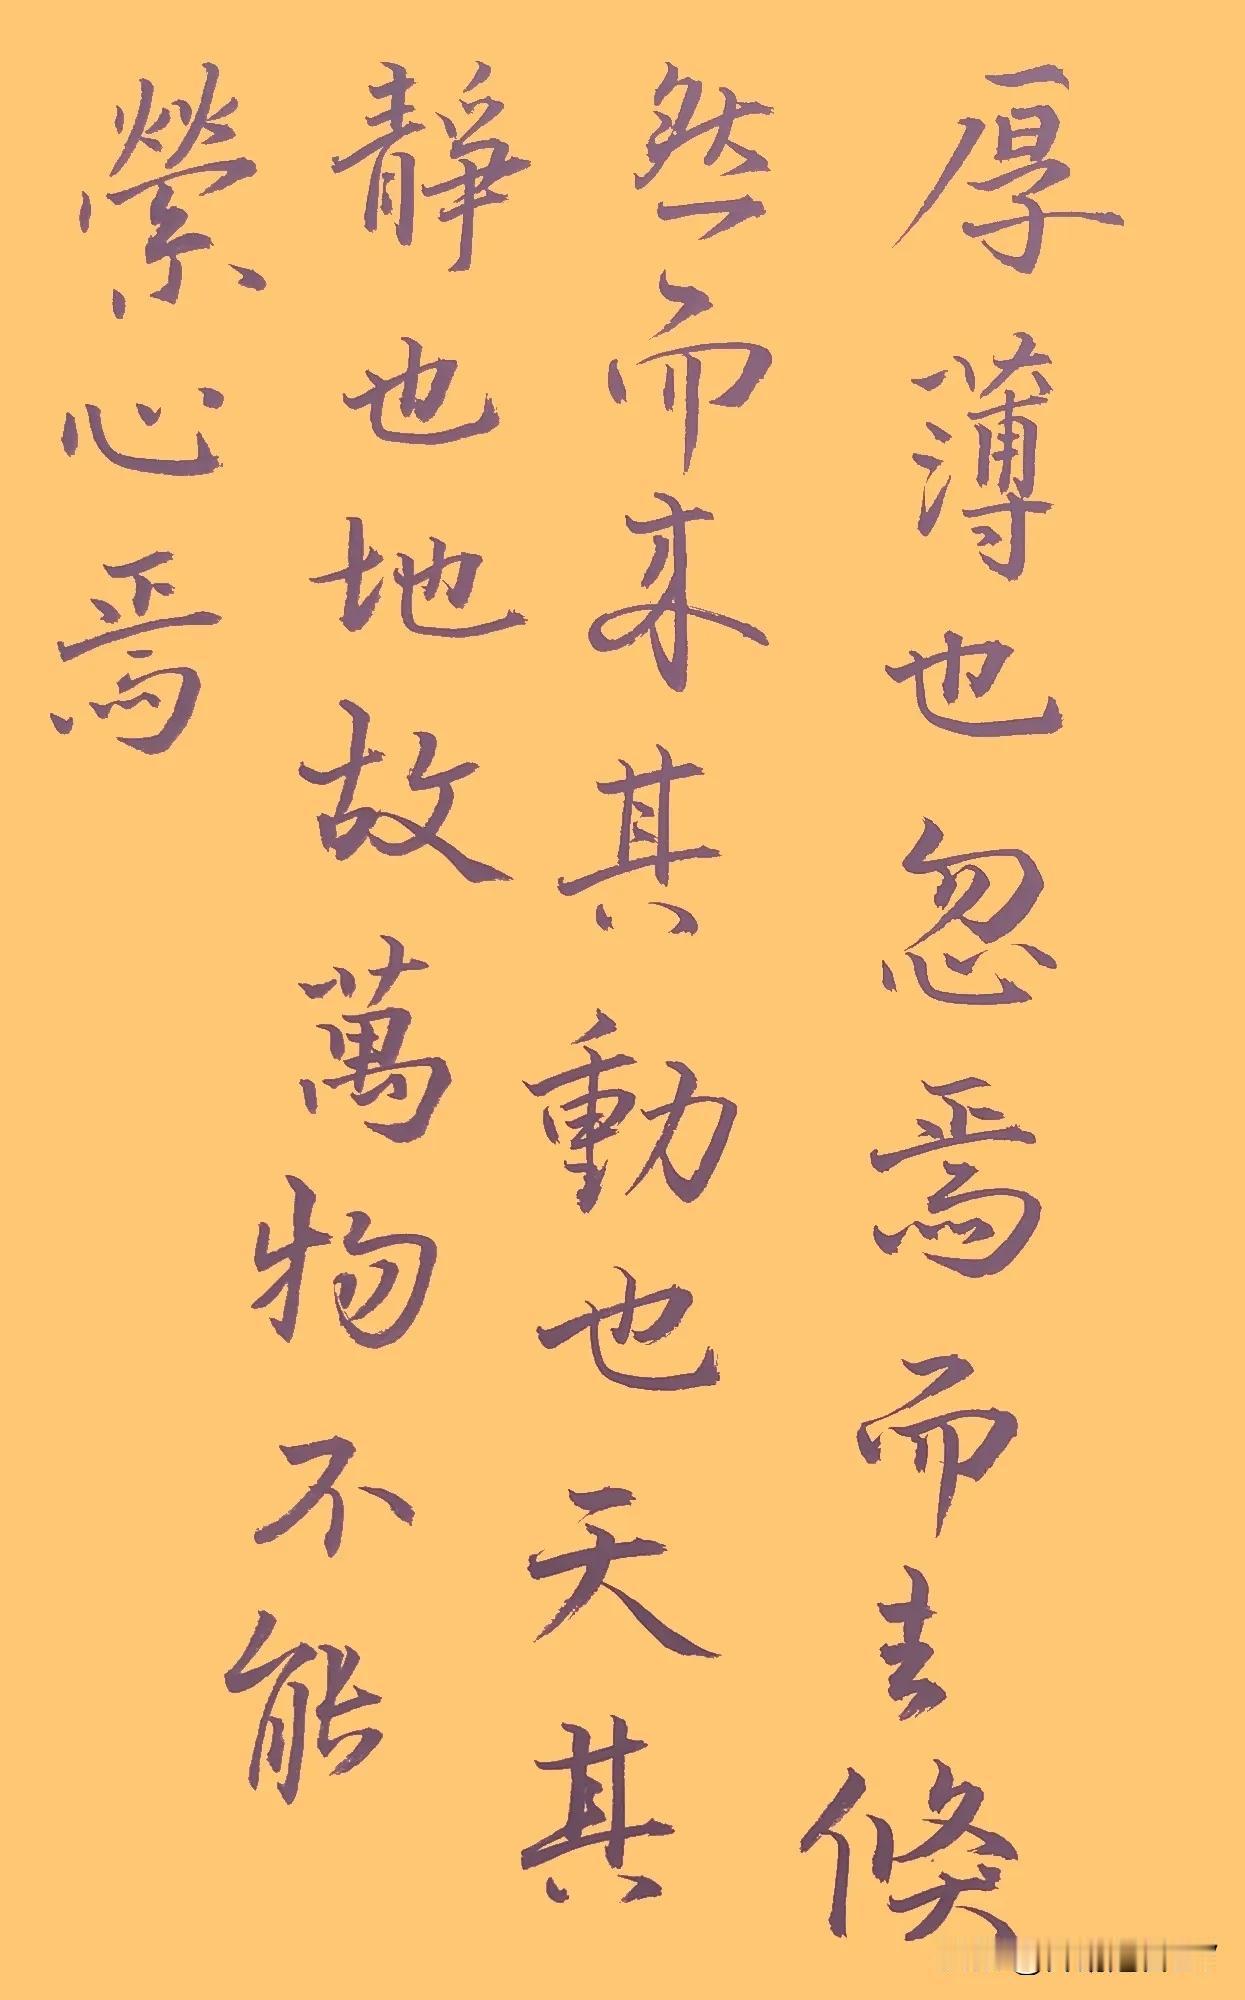 厚薄也忽焉而去倏
然而来其動也天其
靜也地故萬物不能
縈心焉